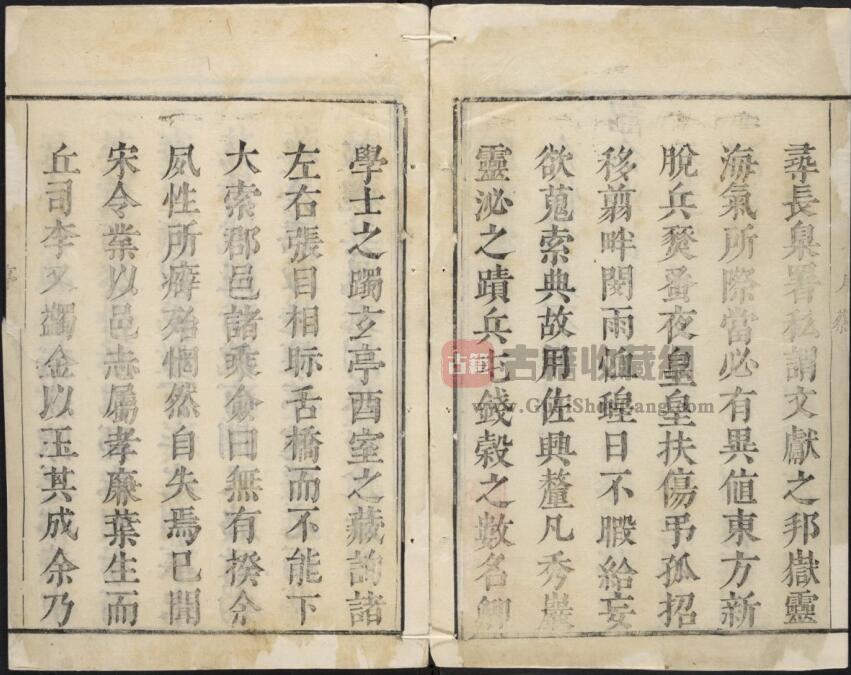 尋長臬署私謂文獻之邦嶽靈
海氣所際當必有異値東方新
脫兵燹蚤夜皇皇扶傷弔孤招
移翦畔閔雨蝗日不暇給妄
欲蒐索典故用佐興釐凡秀巖
靈泌之蹟兵屯錢榖之數名卿
學士之躅玄亭酉室之藏詢諸
左右張目相眎舌橋而不能下
大索郡邑諸乘僉曰無有揆余
夙性所癖殆惘然自失焉已聞
宋令業以邑志屬孝廉葉生而
丘司李又蠲金以玉其成余乃
古籍
古籍收藏
www.GujiShouCang.com